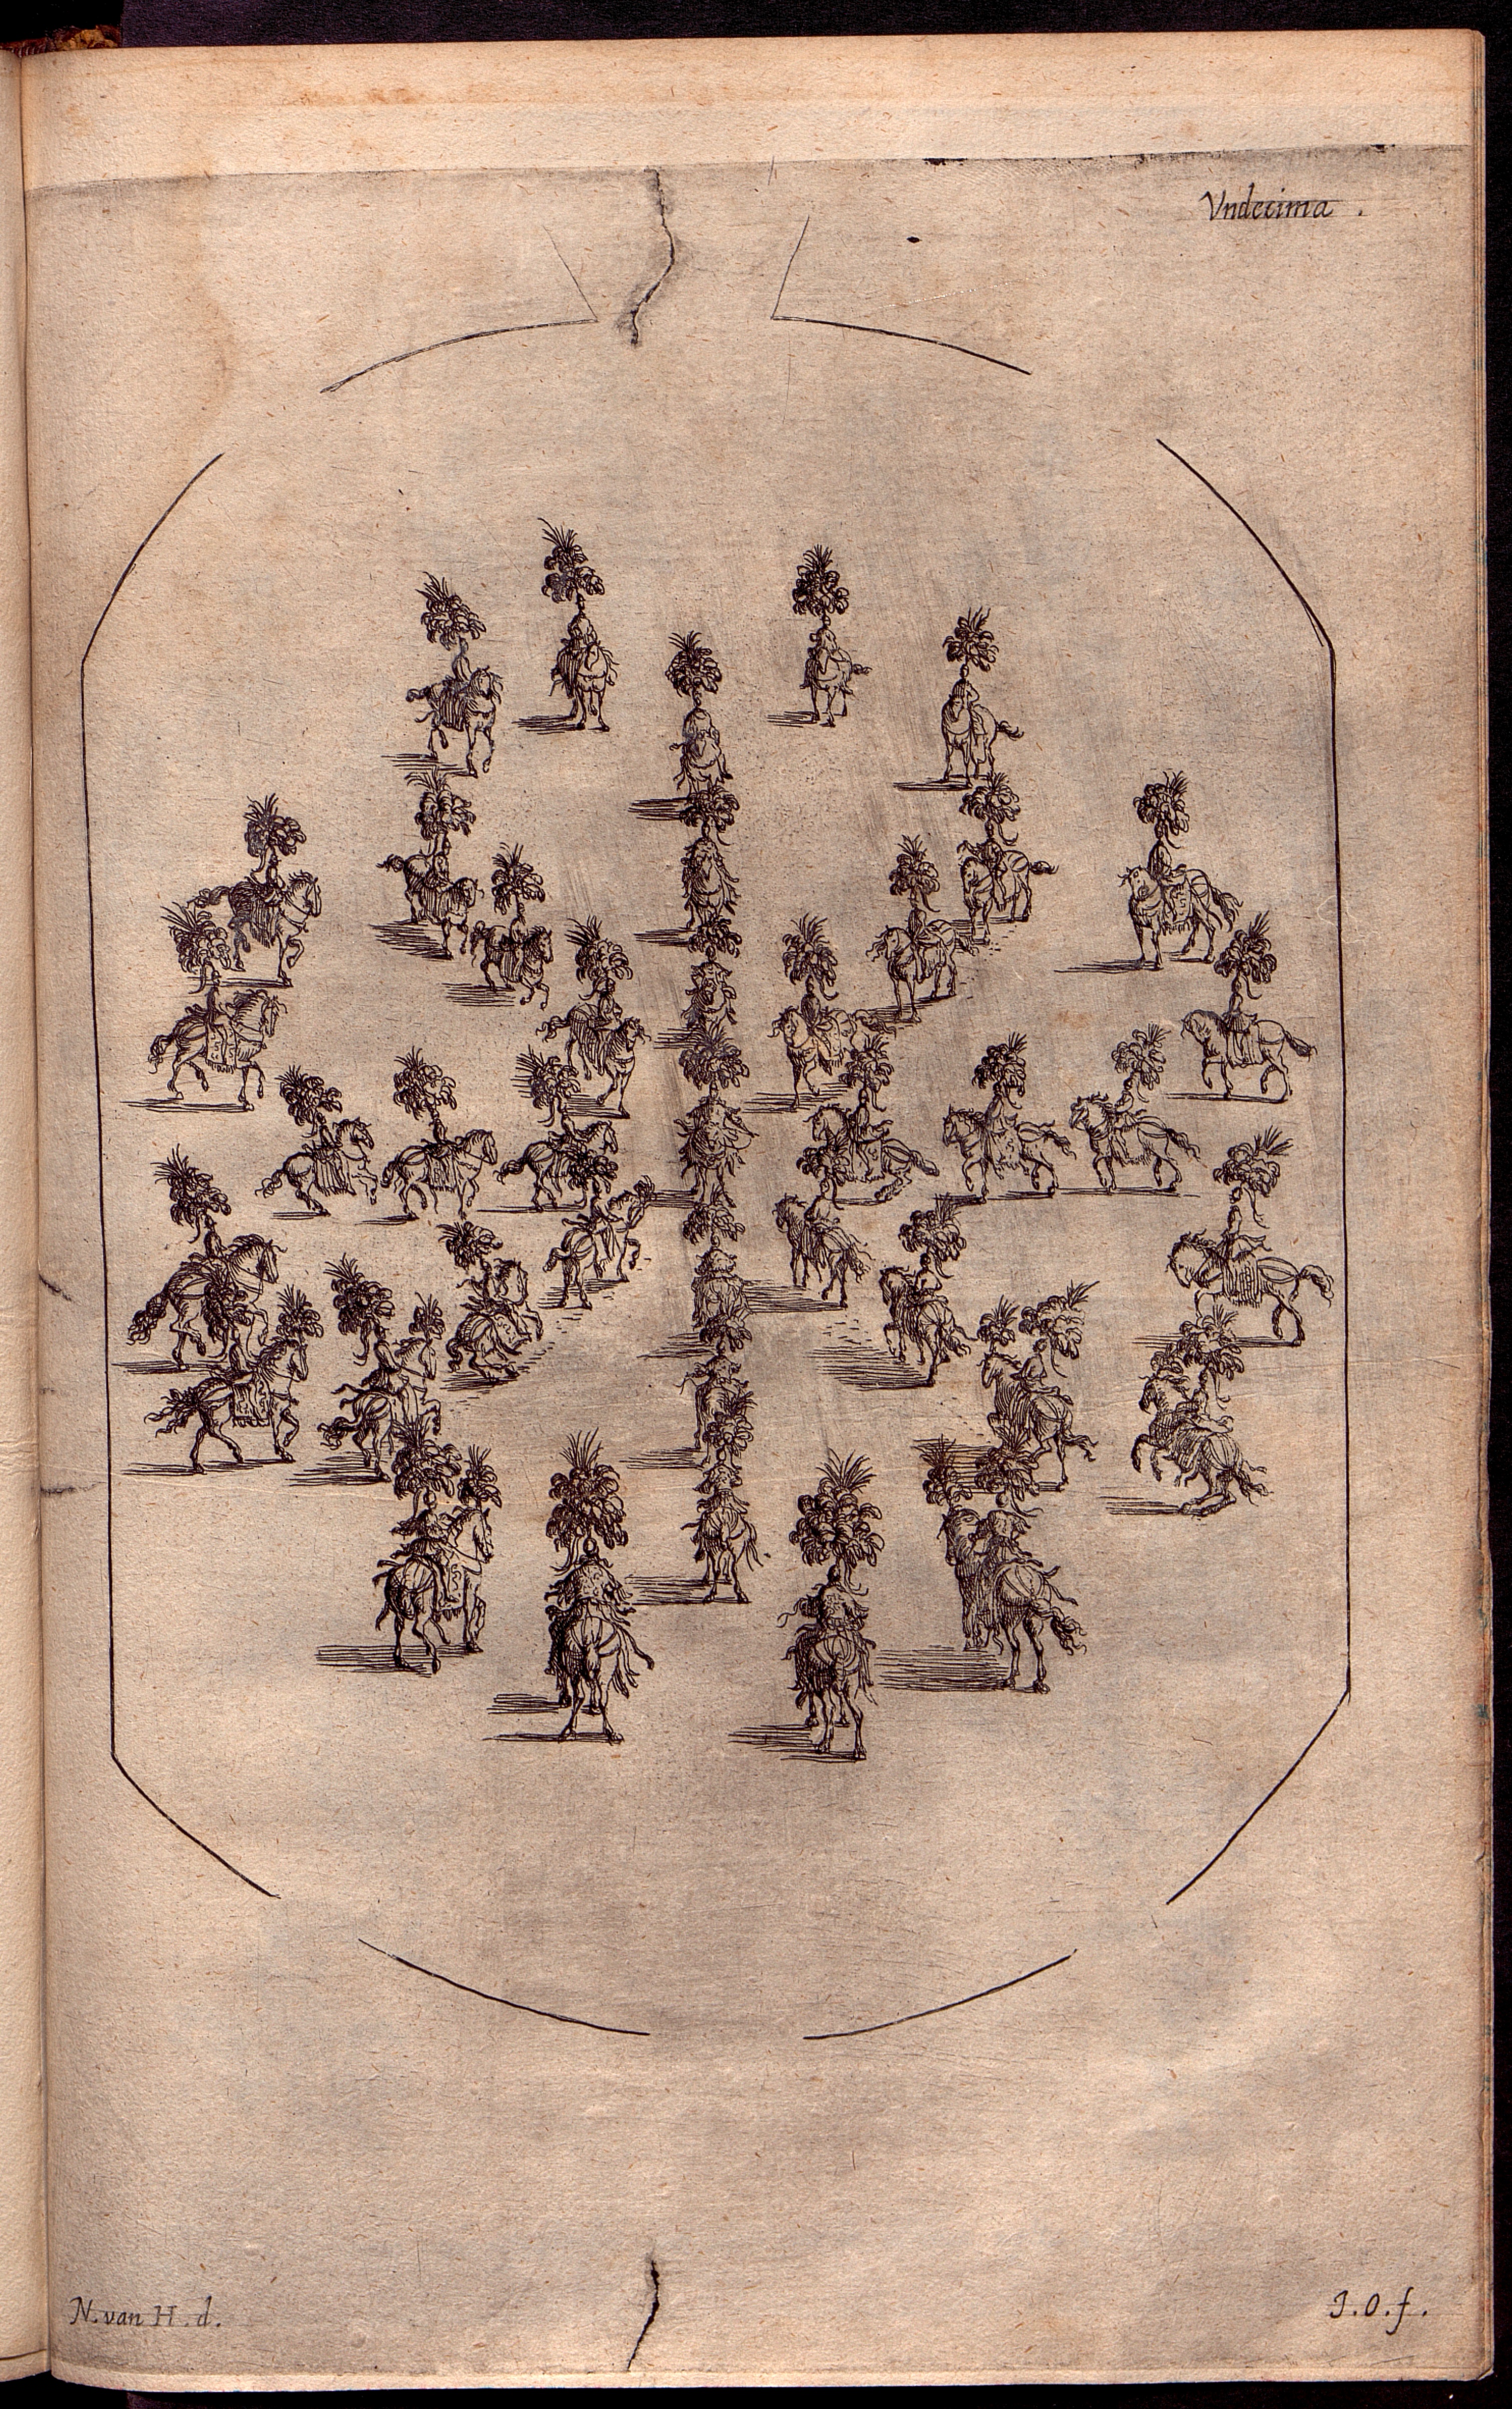 Vndecima .
N. van H. d.
J. O. f.